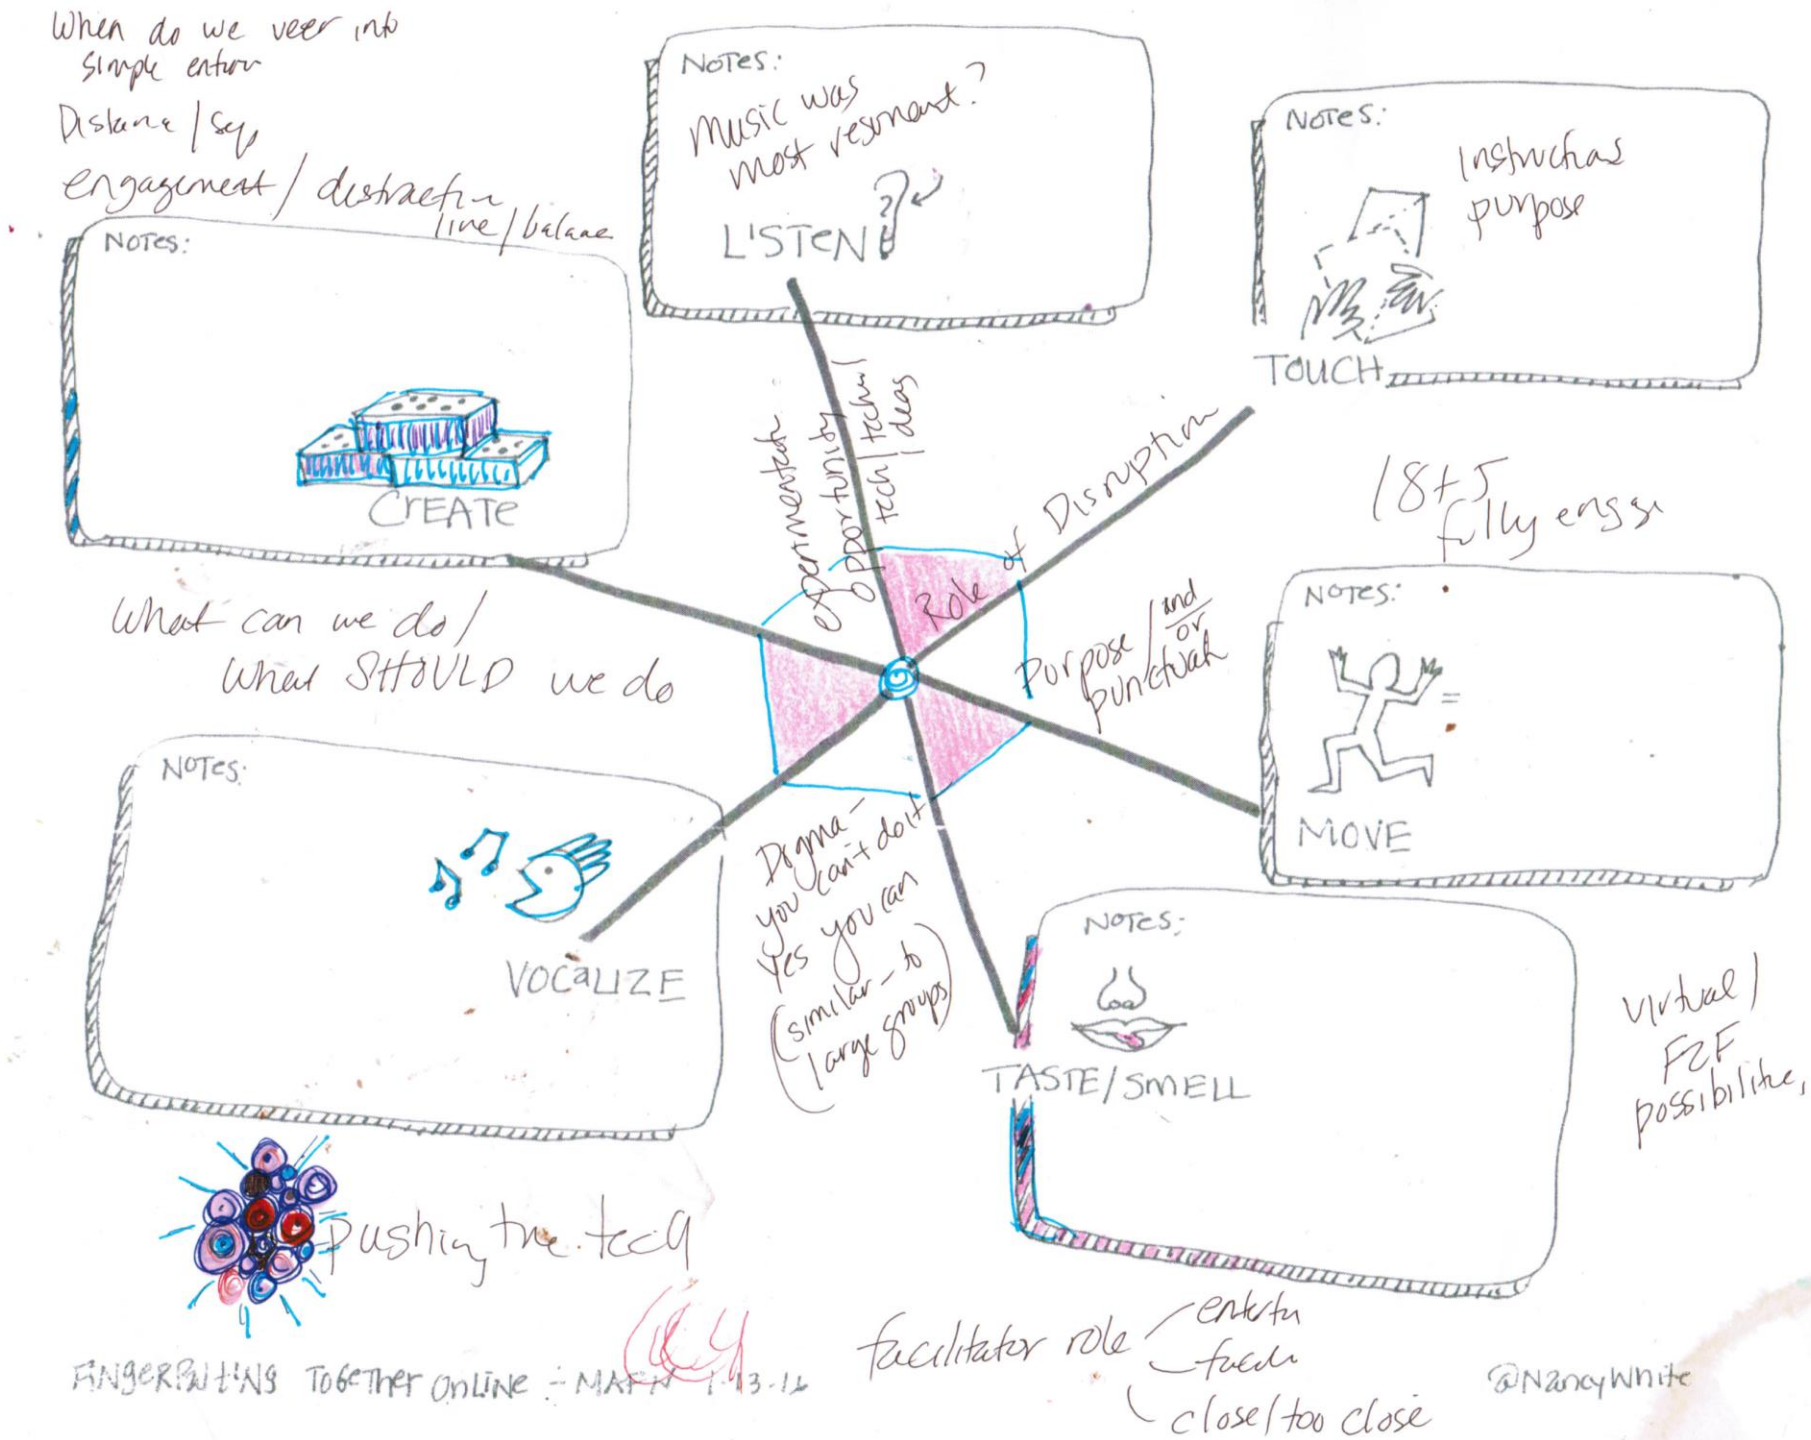 When do we veer into
simple
Distance / sep
engagement / distraction
line/balance
NOTES:
CREATE
NOTES:
Music was
most resonant?
LISTEN
?
NOTES:
Instructions
purpose
TOUCH
opportunity
tech /
ideas
Role of Disruption
18+5
fully
Purpose / and
or
NOTES:
MOVE
What can we do/
What SHOULD we do
NOTES:
VOCALIZE
Dogma -
you can't do it
Yes you can
(similar - to
large groups)
NOTES:
TASTE/SMELL
Virtual /
F2F
pushing the
facilitator role
close/too close
TOGETHER ONLINE - 1-13-16
@NancyWhite